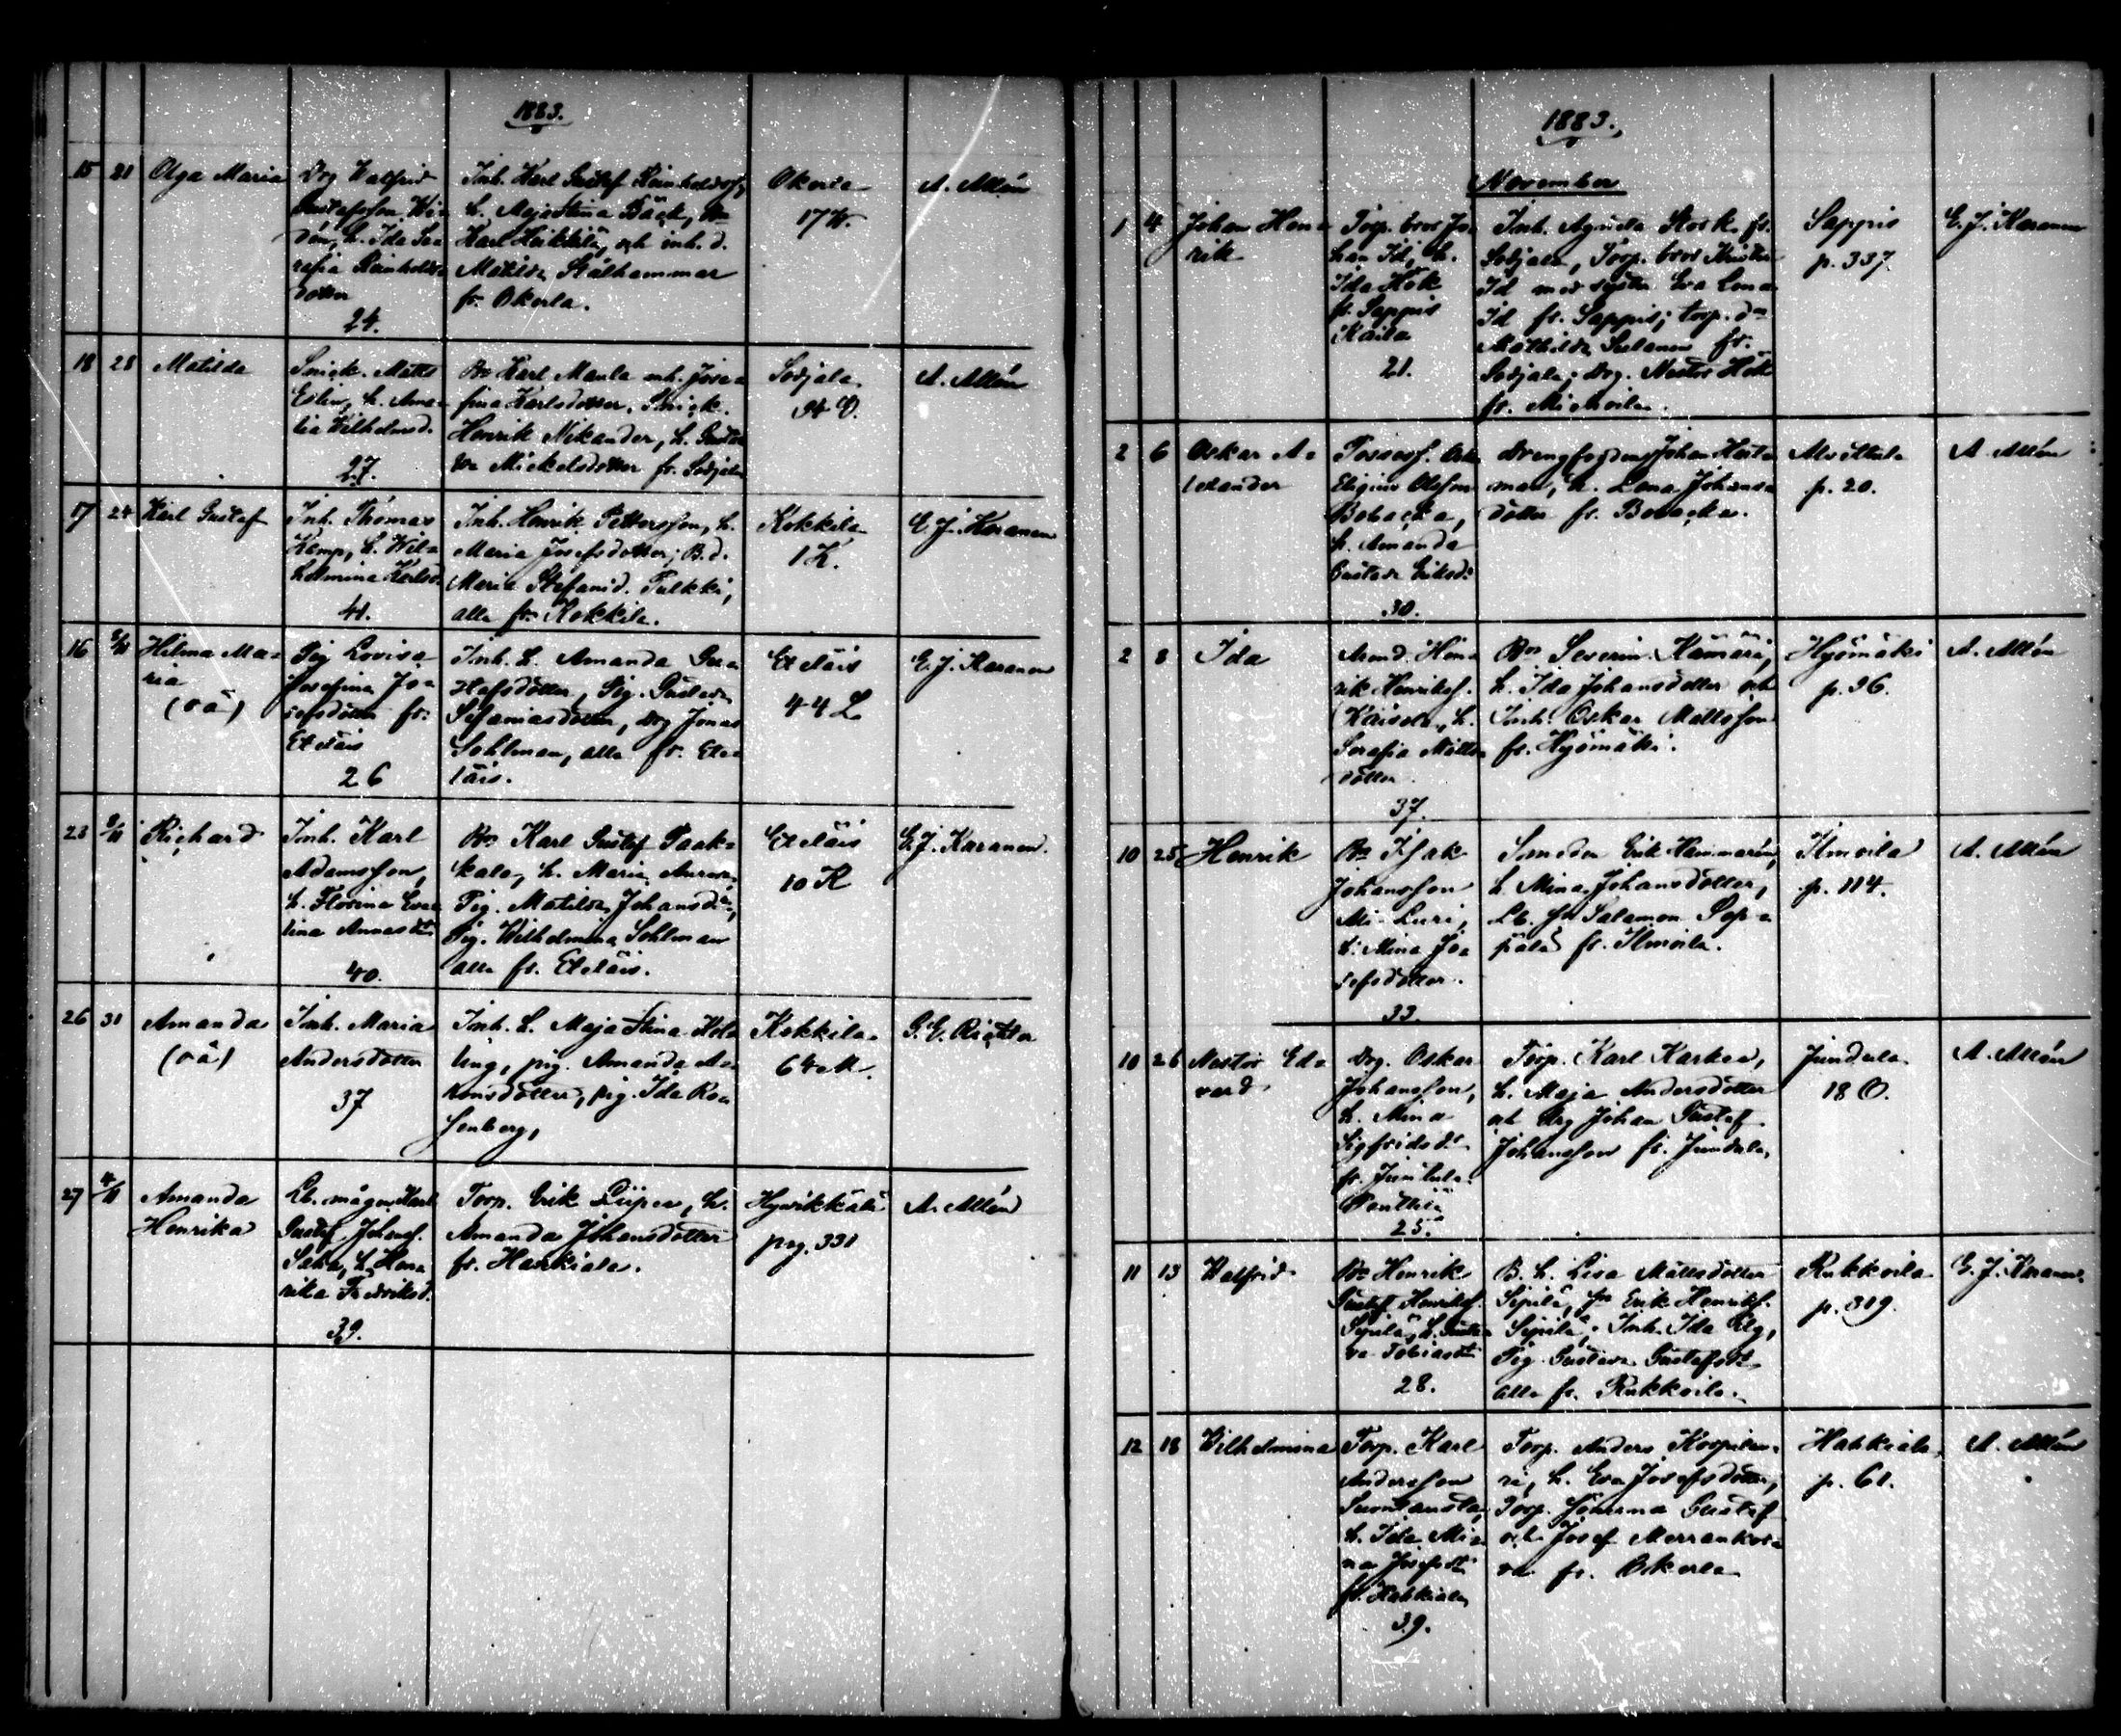 1883.
15 21 Olga Maria
Drg Walfrid
Gustafsson
h. Ida Se-
rafia Reinholds-
dotter
24.
Inh. Karl Gustaf Reinholdss.,
h. Maja Stina Bäck,
Karl Heikkilä, och inh. d.
Matilda Stålhammar
fr. Okerla.
Okerla
17 W.
A. Allén
18 28 Matilda
Snick. Matts
h. Ama-
lia Wilhelmsd.
27.
Bn Karl Manla inh. Jose-
fina Karlsdotter, Snick.
Henrik Nikander, h. Gusta-
va Mickelsdotter fr. Sodjala
Sodjala
94 O.
A. Allén
17 24 Karl Gustaf
Inh. Thomas
Kemp, h. Wil-
helmina Karlsd.
41.
Inh. Henrik Pettersson, h.
Maria Josefsdotter; B. d.
Maria Stefansd. Pulkki,
alla fr. Kokkila.
Kokkila
1 K.
E. J. Karanen
16 8/11 Hilma Ma-
ria
(oä)
Pig Lovisa
Josefina Jo-
sefsdotter fr.
Eteläis
26
Inh. h. Amanda Gus-
tafsdotter, Pig. Gustava
Stefaniasdotter, Drg Jonas
Sohlman, alla fr. Ete-
läis.
Eteläis
44 L
E. J. Karanen
23 8/11 Richard
Inh. Karl
Adamsson,
h. Florina Eve-
lina Annasdtr
40.
Bn Karl Gustaf Paak-
kala, h. Maria
Pig. Matilda Johansdtr,
Pig. Wilhelmina Sohlman
alla fr. Eteläis.
Eteläis
10 K
E. J. Karanen.
26 31 Amanda
(oä)
Inh. Maria
Andersdotter
37
Inh. h. Maja Stina
ling, pig. Amanda A-
tonsdotter, pig. Ida Ro-
senberg,
Kokkila
64 M.
G. E. Richter
27 4/11 Amanda
Henrika
Lb. mågen Karl
Gustaf Johansf.
Saha, h. Hen-
rika Fredriksd.
39.
Torp. Erik Piipea, h.
Amanda Johansdotter
fr. Hankiala.
Hyvikkälä
pag. 331
A. Allén
1883.
November
1 4 Johan Hen-
rik
Torp. bror Jo-
han Id, h.
Ida Hök
fr. Sappis
Kaila
21.
Inh. Agneta Stork fr.
Sodjala, Torp. bror Krister
Id med syster Eva Lena
Id fr. Sappis; torp. dn
Mathilda Salanen fr.
Sodjala; drg. Nestor Hök
fr. Mickoila.
Sappis
p. 337.
E. J. Karanen
2 6 Oskar A-
lexander
Eligius Olsson
Bobacka,
h. Amanda
Gustava Eriksd.
30.
Drengfogden Johan Hert-
man, h. Lena Johans-
dotter fr. Bobacka.
Alvittula
p. 20.
A. Allén
2 8 Ida
Arend. Hen-
rik Henriksf.
Kaisola, h.
Serafia Matts-
dotter
37.
Bn Severin Kämäri,
h. Ida Johansdotter och
Inh. Oskar Mattsson
fr. Hyömäki.
Hyömäki
p. 96.
A. Allén
10 25 Henrik
Bn Isak
Johansson
h. Mina Jo-
sefsdotter.
33.
Smeden Erik Hammarén,
h. Mina Johansdotter,
Lb. sn Salamon Sep-
pälä fr. Ilmoila.
Ilmoila
p. 114.
A. Allén
10 26 Nestor Ed-
vard
Drg. Oskar
Johansson,
h. Mina
Sigfridsdr
fr. Juntula
25.
Torp. Karl Karkea,
h. Maja Andersdotter
och Drg Johan Gustaf
Johansson fr. Jundala
Jundala
18 O.
A. Allén
11 13 Walfrid
Bn Henrik
Gustaf Henriksf.
Sipilä, h. Gusta-
va Tobiasdtr
28.
B. h. Lisa Mattsdotter
Sipilä, sn Erik Henriksf.
Sipilä; Inh. Ida Elg,
Pig Gustava Gustafsdtr
alla fr. Rukkoila.
Rukkoila
p. 319.
E. J. Karanen.
12 18 Wilhelmina
Torp. Karl
Andersson
h. Ida Mi-
na Josefsdtr
fr. Hahkiala
39.
Torp. Anders
h. Eva Josefsdotter,
Torp. sönerna Gustaf
och Josef Merrankor-
va fr. Okerla
Hahkiala,
p. 61.
A. Allén